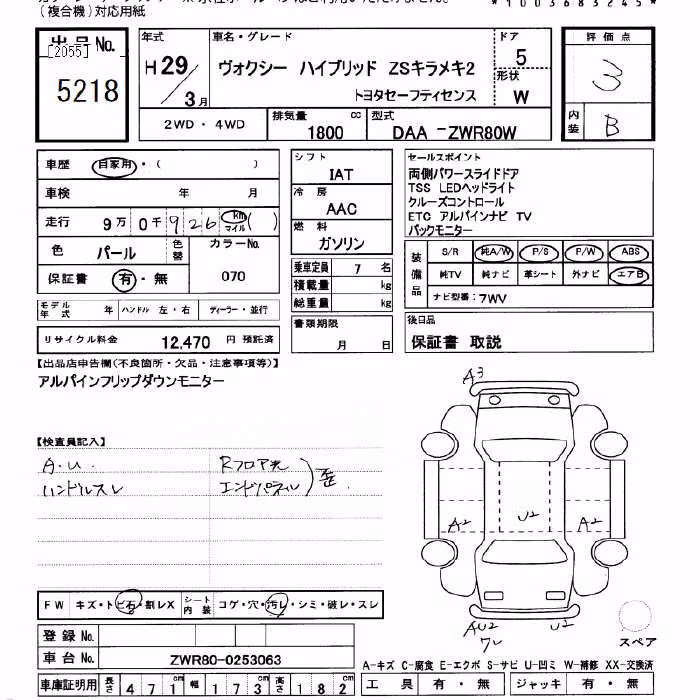 (複合機)対応用紙
*1003683245*
出品No. [2055]
5218
年式 H29/3月
車名・グレード
ヴォクシー ハイブリッド ZSキラメキ2
トヨタセーフティセンス
ドア 5
形状 W
評価点 3
内装 B
2WD・4WD
排気量 1800 cc
型式 DAA-ZWR80W
車歴 自家用・( )
車検 年 月
走行 9万0千926 km マイル ( )
色 パール 色替 カラーNo. 070
保証書 有・無
モデル年式 年 ハンドル 左・右 ディーラー・並行
リサイクル料金 12,470 円 預託済
シフト IAT
冷房 AAC
燃料 ガソリン
乗車定員 7 名
積載量 kg
総重量 kg
書類期限 月 日
セールスポイント
両側パワースライドドア
TSS LEDヘッドライト
クルーズコントロール
ETC アルパインナビ TV
バックモニター
装備品 S/R 純A/W P/S P/W ABS
純TV 純ナビ 革シート 外ナビ エアB
ナビ型番:7WV
後日品
保証書 取説
【出品店申告欄(不良箇所・欠品・注意事項等)】
アルパインフリップダウンモニター
【検査員記入】
A.U. Rフロア先
ハンドルスレ エンドパネル) 歪
A3
A2 U2 A2
AU2 U2
ワレ
FW キズ・トビ石・割レX シート内装 コゲ・穴・汚レ・シミ・破レ・スレ
登録No.
車台No. ZWR80-0253063
車庫証明用 長さ 471cm 幅 173cm 高さ 182cm
スペア
A-キズ C-腐食 E-エクボ S-サビ U-凹ミ W-補修 XX-交換済
工具 有・無 ジャッキ 有・無